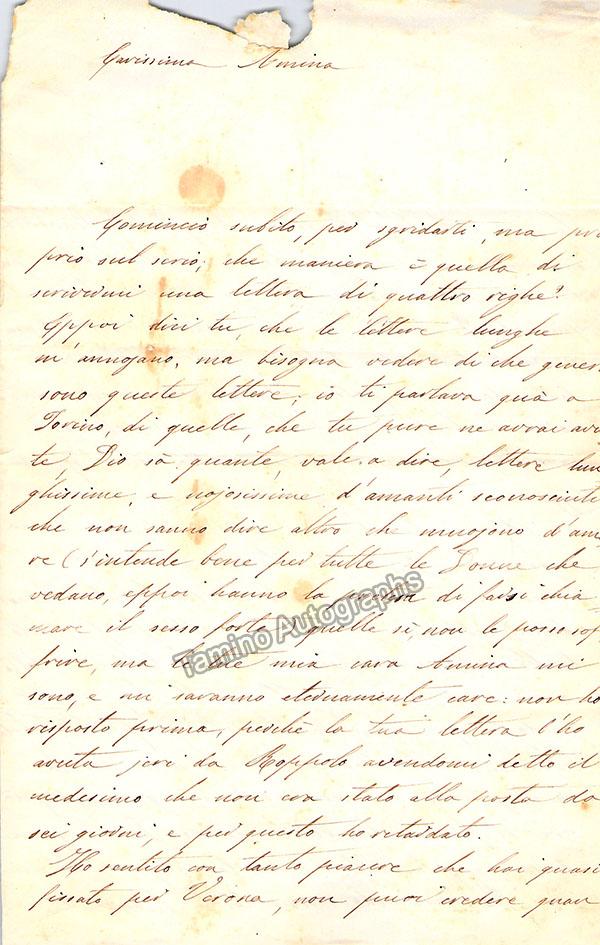 Carissima Amina
Comincio subito, per sgridarti, ma pro
prio sul serio; che maniera è quella di
scrivermi una lettera di quattro righe?
Eppoi dici tu, che le lettere lunghe
m'annojano, ma bisogna vedere di che gener
sono queste lettere; io ti parlava quà a
Torino, di quelle, che tu pure ne avrai avu
te, Dio sà quante, vale a dire, lettere lun
ghissime, e nojosissime d'amanti sconosciuti
che non sanno dire altro che muojono d'amo
re (s'intende bene per tutte le Donne che
vedano, eppoi hanno la di farsi chia
mare il sesso forte) quelle sì, non le posso sof
frire, ma le tue mia cara Amina mi
sono, e mi saranno eternamente care: non ho
risposto prima, perchè la tua lettera l'ho
avuta jeri da Roppolo avendomi detto il
medesimo che non era stato alla posta da
sei giorni, e per questo ho retardato.
Ho sentito con tanto piacere che hai quasi
fissato per Verona, non puoi credere quan
Tamino Autographs